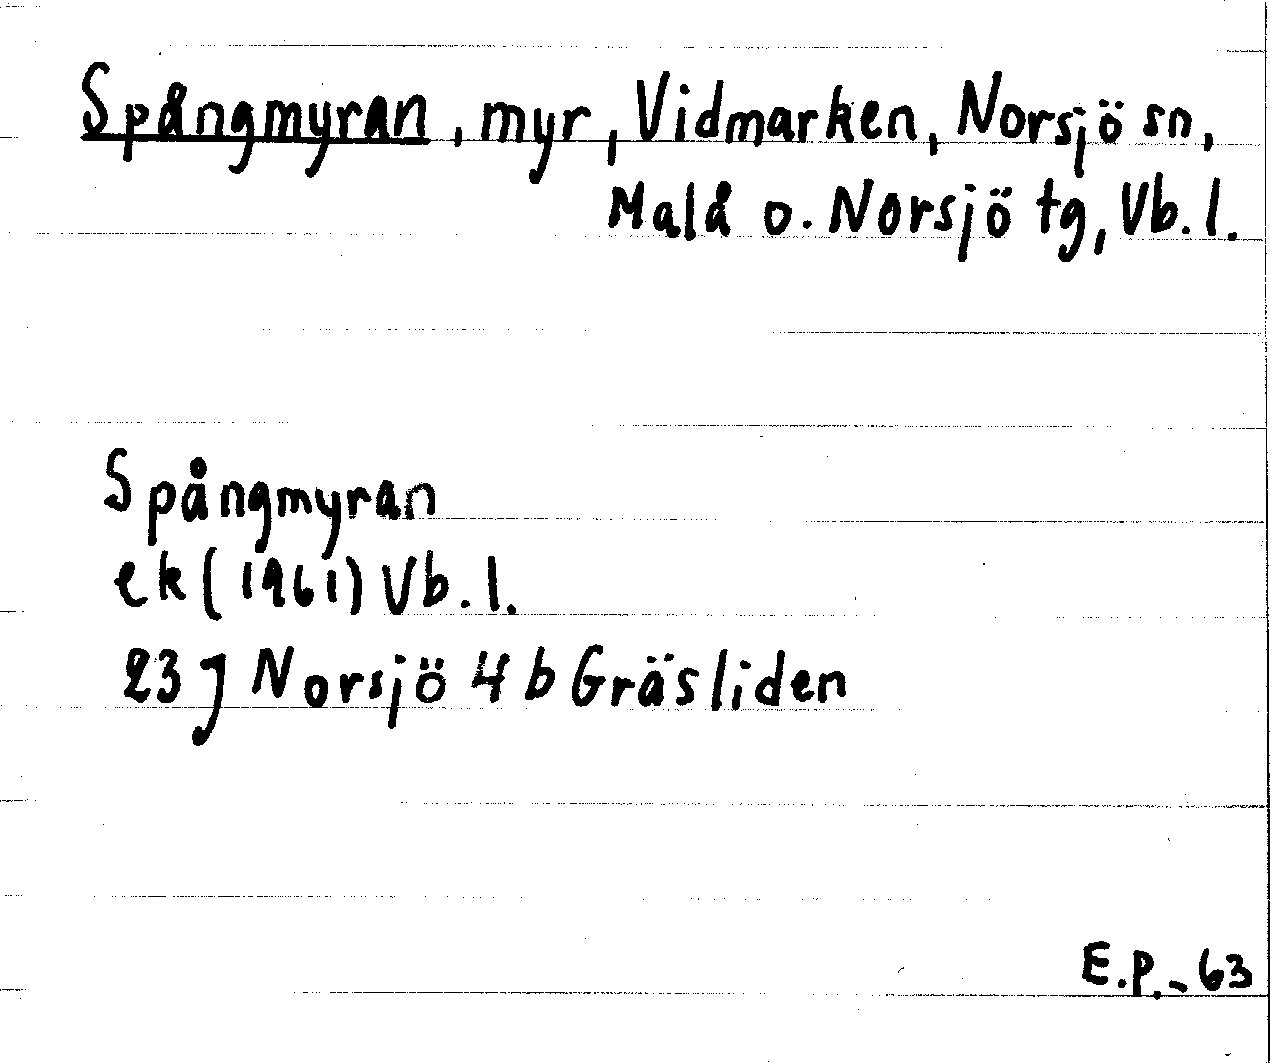 Spångmyran, myr, Vidmarken, Norsjö sn,
Malå o. Norsjö tg, Vb. l.
Spångmyran
ek (1961) Vb. l.
23 J Norsjö 4 b Gräsliden
E.P.-63